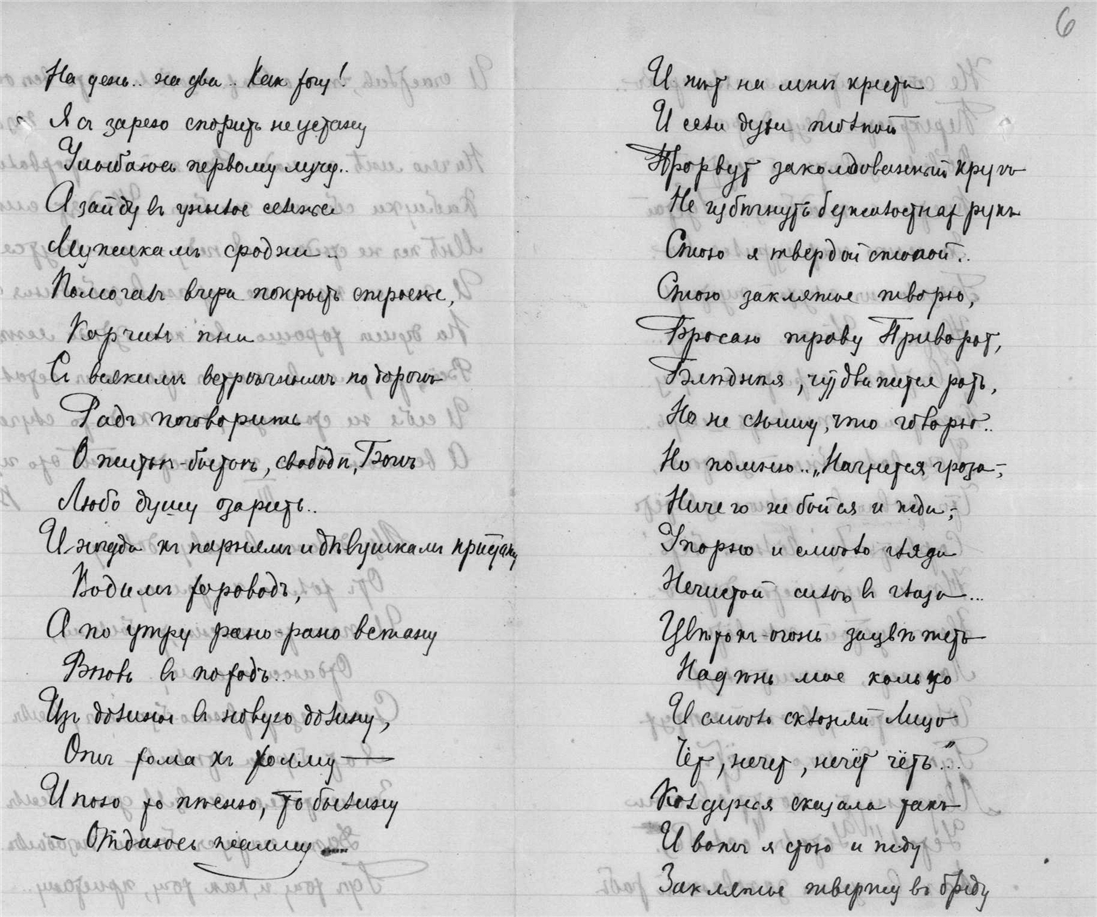 На день.. на два.. Как хочу!
Я съ зарею спорить не устану
Улыбаюсь первому лучу..
А зайду въ унылое селенье
Мужикамъ сродни..
Помогалъ вчера покрыть строенье,
Корчилъ пни
Съ всякимъ встрѣчнымъ по дорогѣ
Радъ поговорить
О житьѣ-бытьѣ, свободѣ, Богѣ
Любо душу озарить..
Иногда къ парнямъ и дѣвушкамъ пристану
Водимъ хороводъ,
А по утру рано-рано встану
Вновь въ походъ..
Изъ долины въ новую долину,
Отъ холма къ холму —
И пою то пѣсню, то былину
Отдаюсь псалму
6
И нѣт на мнѣ креста
И сѣти духи тьмою
Прорвут заколдованный кругъ
Не избѣгнуть безжалостных рукъ
Стою я твердой стопой..
Стою заклятье творю,
Бросаю траву Приворот,
Блѣднѣя, чуть движется ротъ,
Но не слышу, что говорю..
Но помню.. „Начнется гроза—
Ничего не бойся и жди;
Упорно и смѣло гляди
Нечистой силѣ въ глаза...
Цвѣтокъ-огонь зацвѣтетъ
Надѣнь мое кольцо
И смѣло склоняй лицо
Чёт, нечет, нечёт чётъ..."
Колдунья сказала такъ
И вотъ я стою и жду
Заклятье твержу въ бреду